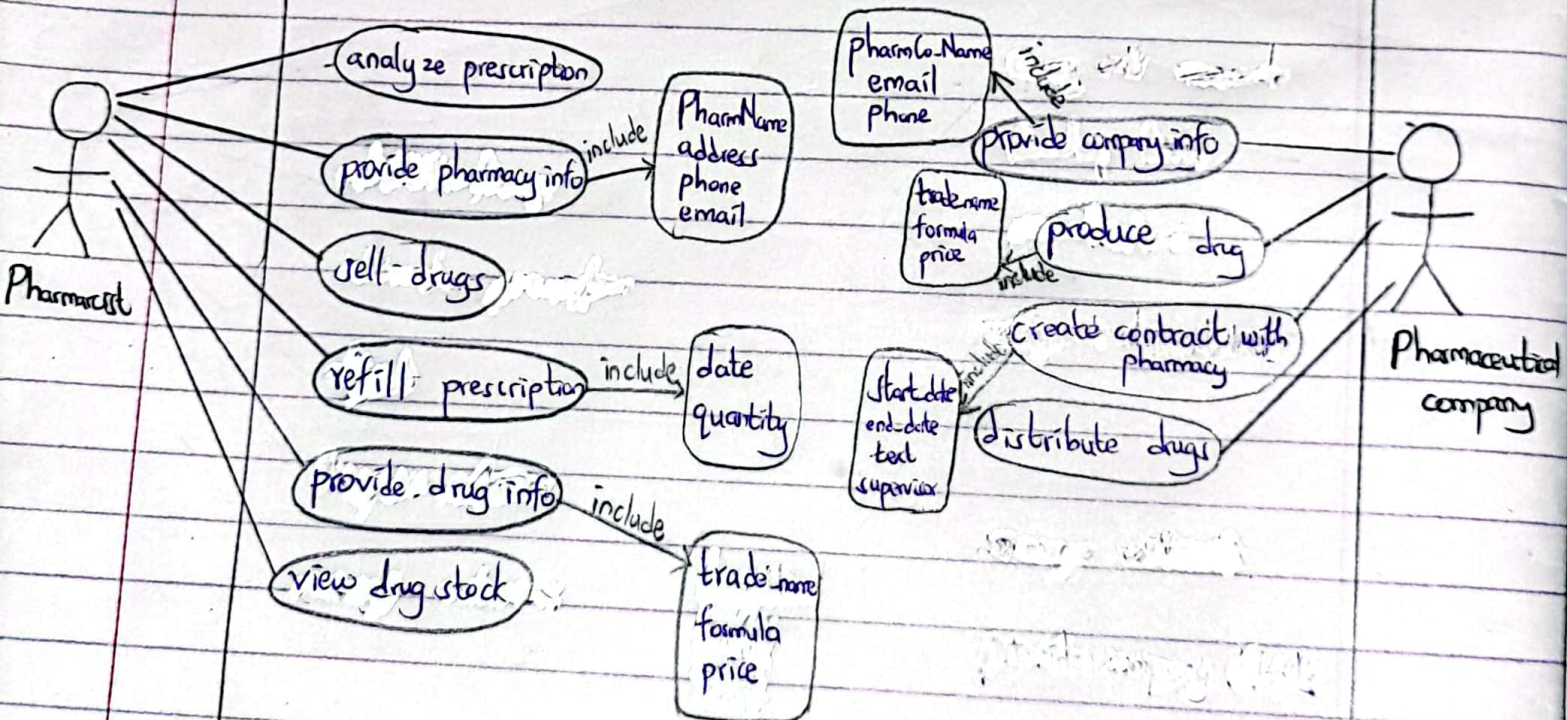 analyze prescription
provide pharmacy info
include
PharmName
address
phone
email
sell drugs
Pharmarcist
refill prescription
include
date
quantity
provide drug info
include
trade_name
formula
price
view drug stock
pharmCo_Name
email
phone
include
provide company info
tradename
formula
price
produce drug
include
create contract with
pharmacy
include
start_date
end_date
text
supervisor
distribute drugs
Pharmaceutical
company